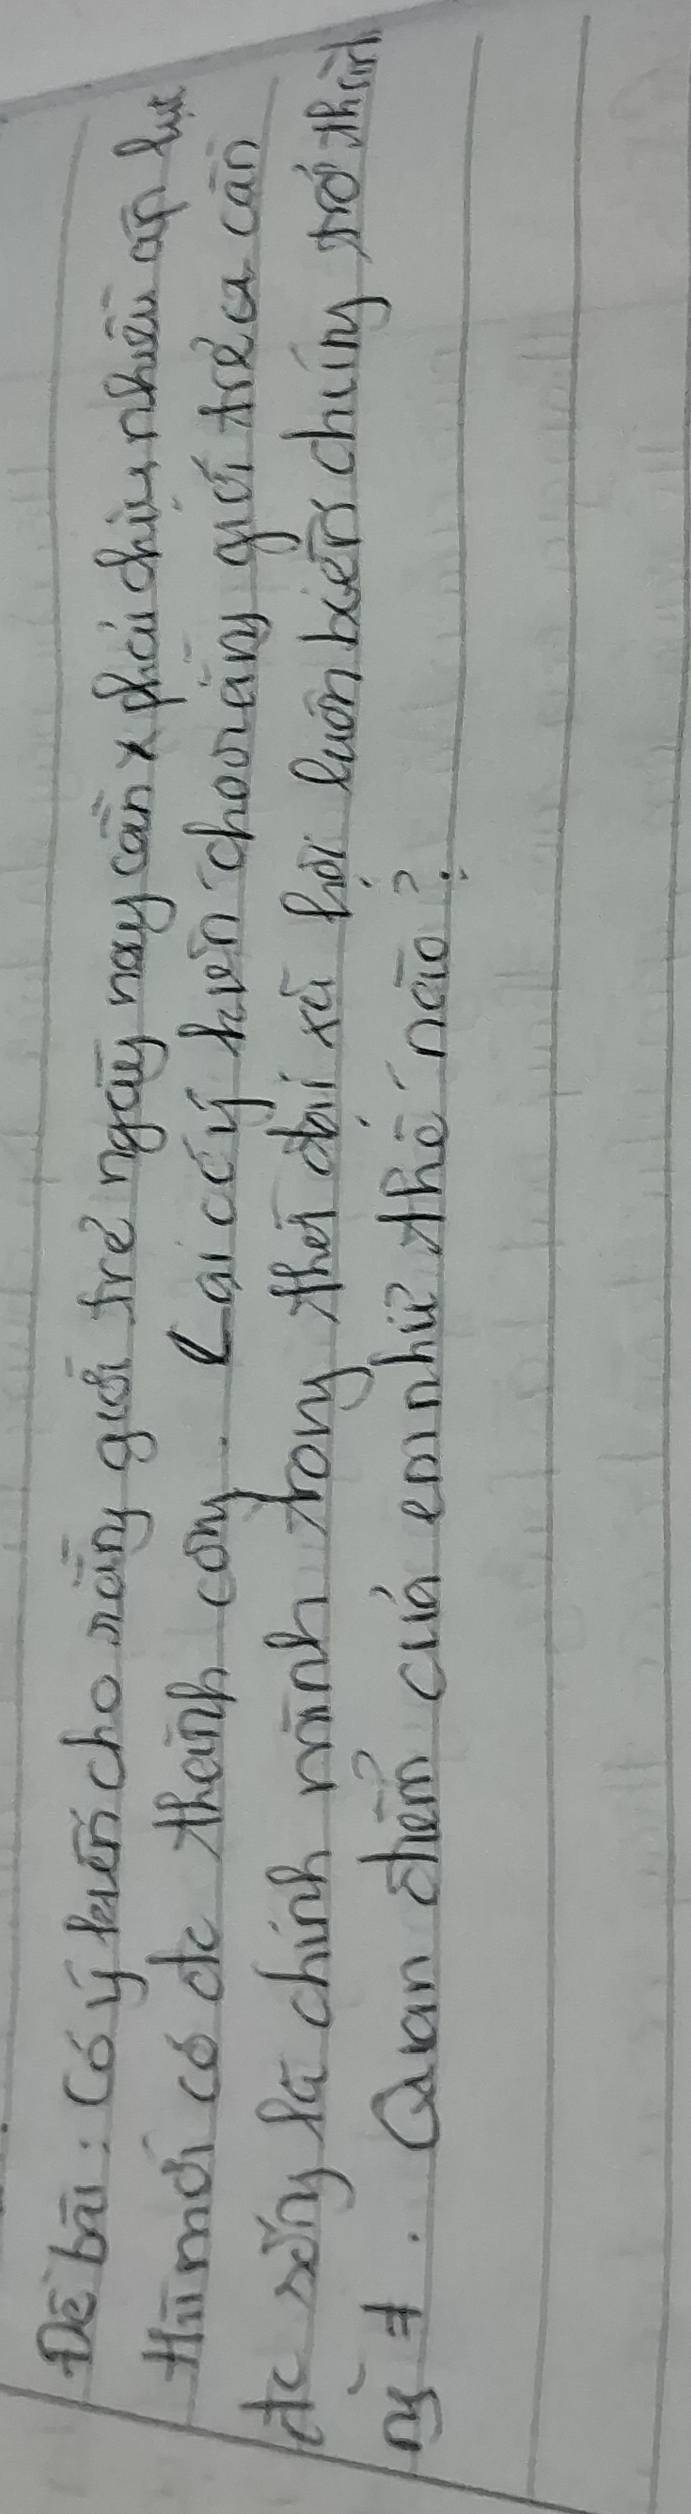 Đề bài: Có ý kiến cho rằng giới trẻ ngày nay cần x phải chịu nhiều áp lực
thì mới có đc thành công. Lại có ý kiến cho rằng giới trẻ cần
đc sống là chính mình trong thời đại xã hội luôn biến chúng trở thành
ng ≠. Quan điểm của em như thế nào?